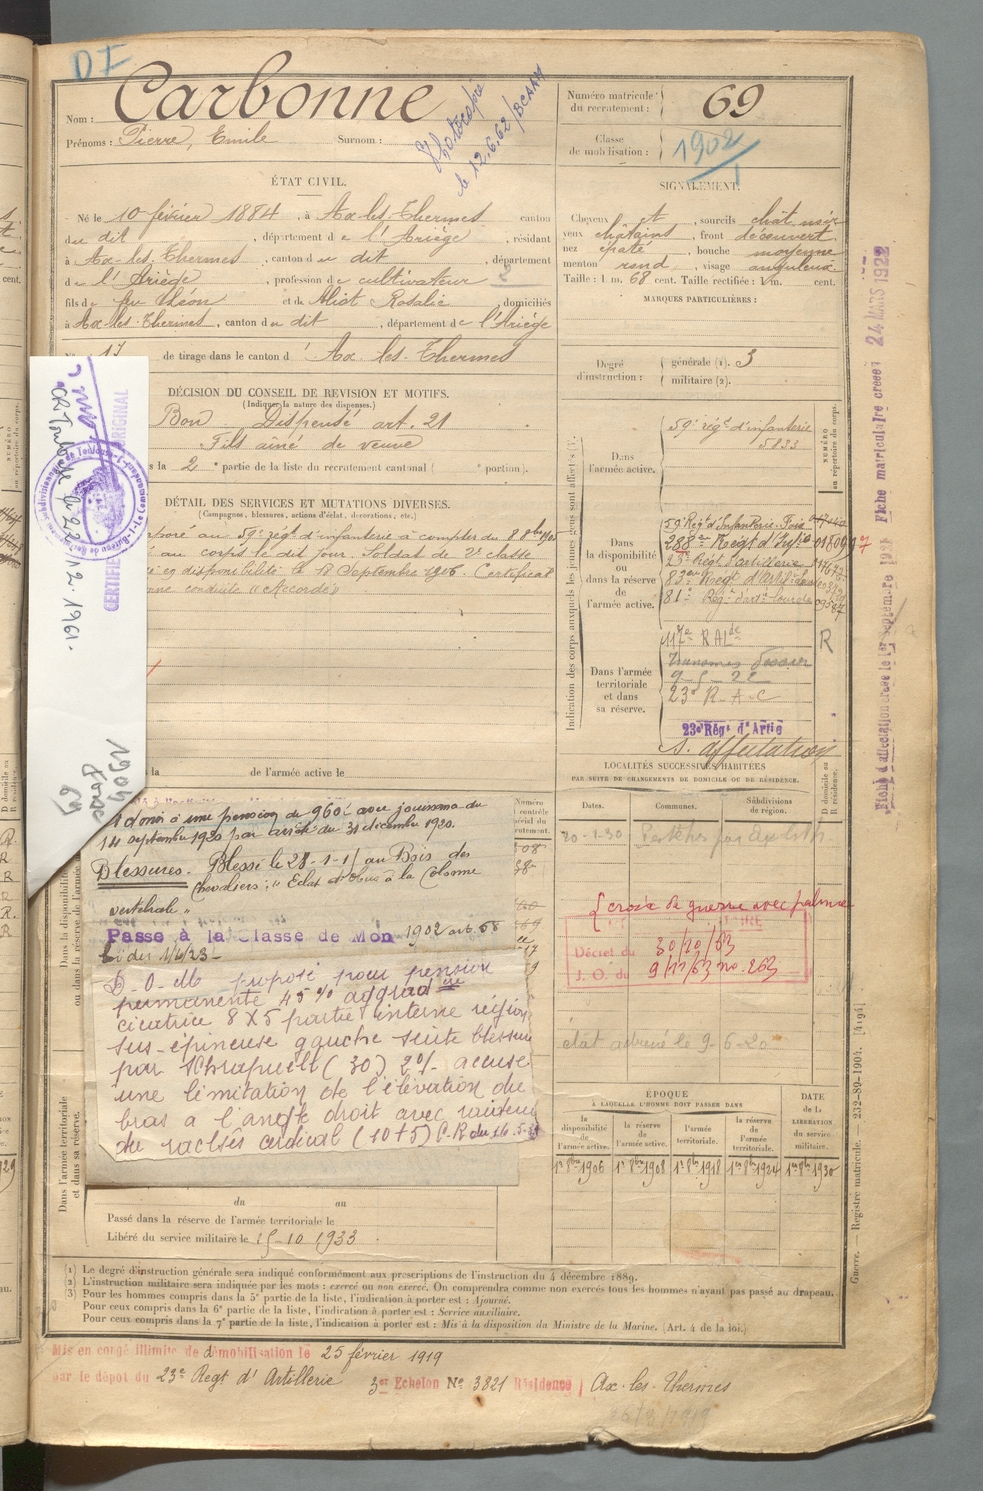 DI
Nom : Carbonne
Prénoms : Pierre, Emile Surnom :
Photocopié
le 12.6.62 / BCAAM
Numéro matricule du recrutement : 69
Classe de mobilisation : 1902
ÉTAT CIVIL.
Né le 10 février 1884, à Ax-les-Thermes canton
du dit, département de l'Ariège, résidant
à Ax-les-Thermes, canton du dit, département
de l'Ariège, profession de cultivateur
fils de feu Cléon et de Aliot Rosalie, domiciliés
à Ax-les-Thermes, canton du dit, département de l'Ariège
N° 17 de tirage dans le canton d' Ax-les-Thermes
SIGNALEMENT.
Cheveux et, sourcils chât. noir
yeux châtains, front découvert
nez épaté, bouche moyenne
menton rond, visage anguleux
Taille : 1 m. 68 cent. Taille rectifiée : 1 m. cent.
MARQUES PARTICULIÈRES :
Degré d'instruction : générale (1). 3
militaire (2).
DÉCISION DU CONSEIL DE REVISION ET MOTIFS.
(Indiquer la nature des dispenses.)
Bon Dispensé art. 21
Fils aîné de veuve
la 2e partie de la liste du recrutement cantonal ( portion).
DÉTAIL DES SERVICES ET MUTATIONS DIVERSES.
(Campagnes, blessures, actions d'éclat, décorations, etc.)
au 59e rég. d'infanterie à compter du 8 8bre 1905
au corps le dit jour. Soldat de 2e classe
en disponibilité le 18 Septembre 1906. Certificat
conduite "Accordé"
de l'armée active le
CERTIFIE ORIGINAL
Toulouse le 22.12.1961.
1904
69
Indication des corps auxquels les jeunes gens sont affectés
Dans l'armée active.
59e rég. d'infanterie
5833
NUMÉRO au répertoire du corps.
Dans la disponibilité ou dans la réserve de l'armée active.
59 Régt d'Infanterie Foix
288e Régt d'Infie
23e Régt d'Artillerie
83e Régt d'Artie Lourde
81e Régt d'Artie Lourde
R
Dans l'armée territoriale et dans sa réserve.
117e RALde
9-5-22
23e R-A-C
23e Régt d'Artie
S. affectation
Fiche matriculaire créée 24 MARS 1922
LOCALITÉS SUCCESSIVES HABITÉES
PAR SUITE DE CHANGEMENTS DE DOMICILE OU DE RÉSIDENCE.
Dates. Communes. Subdivisions de région. D domicile ou R résidence.
20-1-30 Perles par Ax-les-Th.
à une pension de 960f avec jouissance du
14 septembre 1920 par arrêté du 31 décembre 1920.
Blessures. Blessé le 28-1-15 au Bois des
Chevaliers, "Eclat d'obus à la Colonne
vertébrale"
Passé à la Classe de Mon 1902 art. 58
Loi du 1/4/23
(croix de guerre avec palme
Décret du 30/10/63
J. O. du 9/11/63 no. 263
D-O-M propose pour pension
permanente 45% aggravon
cicatrice 8X5 partie interne région
sus-épineuse gauche suite blessure
par Schrapnell (30) 2°/- accuse
une limitation de l'élévation du
bras à l'angle droit avec raideur
du rachis cervical (10+5) C.R du 16.5-31
état adressé le 9-6-20
ÉPOQUE
À LAQUELLE L'HOMME DOIT PASSER DANS
la disponibilité de l'armée active. la réserve de l'armée active. l'armée territoriale. la réserve de l'armée territoriale. DATE de la LIBÉRATION du service militaire.
1er 8bre 1906 1er 8bre 1908 1er 8bre 1918 1er 8bre 1924 1er 8bre 1930
Dans l'armée territoriale et dans sa réserve.
du au
Passé dans la réserve de l'armée territoriale le
Libéré du service militaire le 15-10-1933
Guerre. — Registre matricule. — 232-89-1904. [4194]
(1) Le degré d'instruction générale sera indiqué conformément aux prescriptions de l'instruction du 4 décembre 1889.
(2) L'instruction militaire sera indiquée par les mots : exercé ou non exercé. On comprendra comme non exercés tous les hommes n'ayant pas passé au drapeau.
(3) Pour les hommes compris dans la 5e partie de la liste, l'indication à porter est : Ajourné.
Pour ceux compris dans la 6e partie de la liste, l'indication à porter est : Service auxiliaire.
Pour ceux compris dans la 7e partie de la liste, l'indication à porter est : Mis à la disposition du Ministre de la Marine. (Art. 4 de la loi.)
Mis en congé illimité de démobilisation le 25 février 1919
par le dépôt du 23e Régt d'Artillerie 3er Echelon No 3821 Résidence Ax-les-Thermes